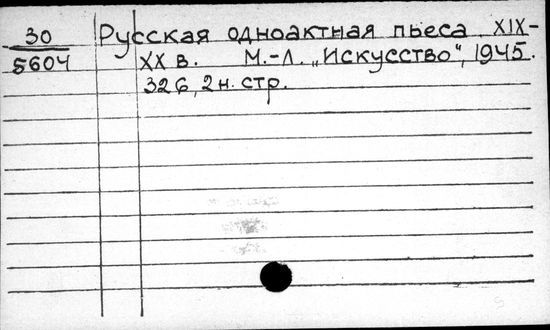 30 Русская одноактная пьеса XIX-
5604 XX в. М.-Л. „Искусство", 1945.
326, 2 н. стр.